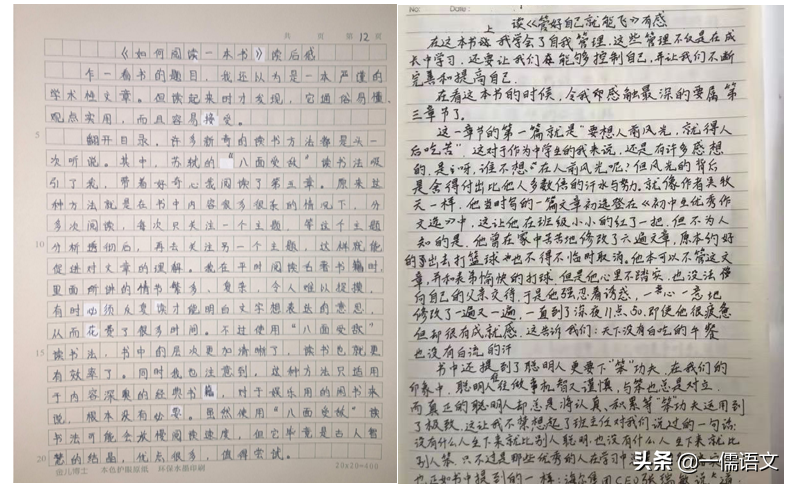 共 页 第 12 页
《如何阅读一本书》读后感
乍一看书的题目，我还以为是一本严谨的
学术性文章。但读起来时才发现，它通俗易懂、
观点实用，而且容易接受。
5
翻开目录，许多新奇的读书方法都是头一
次听说。其中，苏轼的“八面受敌”读书法吸
引了我，带着好奇心我阅读了第五章。原来这
种方法就是在书中内容很多很杂的情况下，分
多次阅读，每次只关注一个主题，等这个主题
10
分析透彻后，再去关注另一个主题，这样就能
促进对文章的理解。我在平时阅读名著书籍时，
里面所讲的情节繁多，复杂，令人难以捉摸，
有时必须反复读才能明白文字想表达的意思，
从而花费了很多时间。不过使用“八面受敌”
15
读书法，书中的层次更加清晰了，读书也就更
有效率了。同时我也注意到，这种方法只适用
于内容深奥的经典书籍，对于娱乐用的闲书来
说，根本没有必要。虽然使用“八面受敌”读
书法可能会放慢阅读速度，但它毕竟是古人智
20
慧的结晶，优点很多，值得尝试。
本色护眼原纸 环保水墨印刷
20×20=400
No.
Date
读《管好自己就能飞》有感
在这本书上我学会了自我管理，这些管理不仅是在成
长中学习，还要让我们在能够控制自己，并让我们不断
完善和提高自己.
在看这本书的时候，令我印感触最深的要属第
三章节了。
这一章节的第一篇就是“要想人前风光，就得人
后吃苦”，这对于作为中学生的我来说，还是有许多感想
的，是呀，谁不想“在人前风光呢？但风光的背后
是会得付出比他人多数倍的汗水与努力。就像作者吴牧
天一样，他当时写的一篇文章初选登在《初中生优秀作
文选》中，这让他在班级小小的红了一把，但不为人
知的是，他曾在家中苦苦地修改了六遍文章，原本约好
的出去打篮球也不得不临时取消，他本可以不管这文
章，并和表弟愉快的打球，但是他心里不踏实，也没法
向自己的父亲交待，于是他强忍着诱惑，一心一意地
修改了一遍又一遍，一直到了深夜11点30，即使他很疲惫
但却很有成就感，这告诉我们：天下没有白吃的午餐
也没有白流的汗
书中还提到了聪明人更要下“笨”功夫，在我们的
印象中，聪明人往做事和智又谨慎，与笨也总是对立，
而真正的聪明人却总是将认真、积累等“笨”功夫运用到
了极致，这让我不禁想起了班主任对我们说过的一句话：
没有什么人生下来就比别人聪明，也没有什么人生下来就比
别人笨，只不过是那些优秀的人在学习中
也正如书中提到的一样：海尔集团CEO张瑞敏说道
头条 @一儒语文